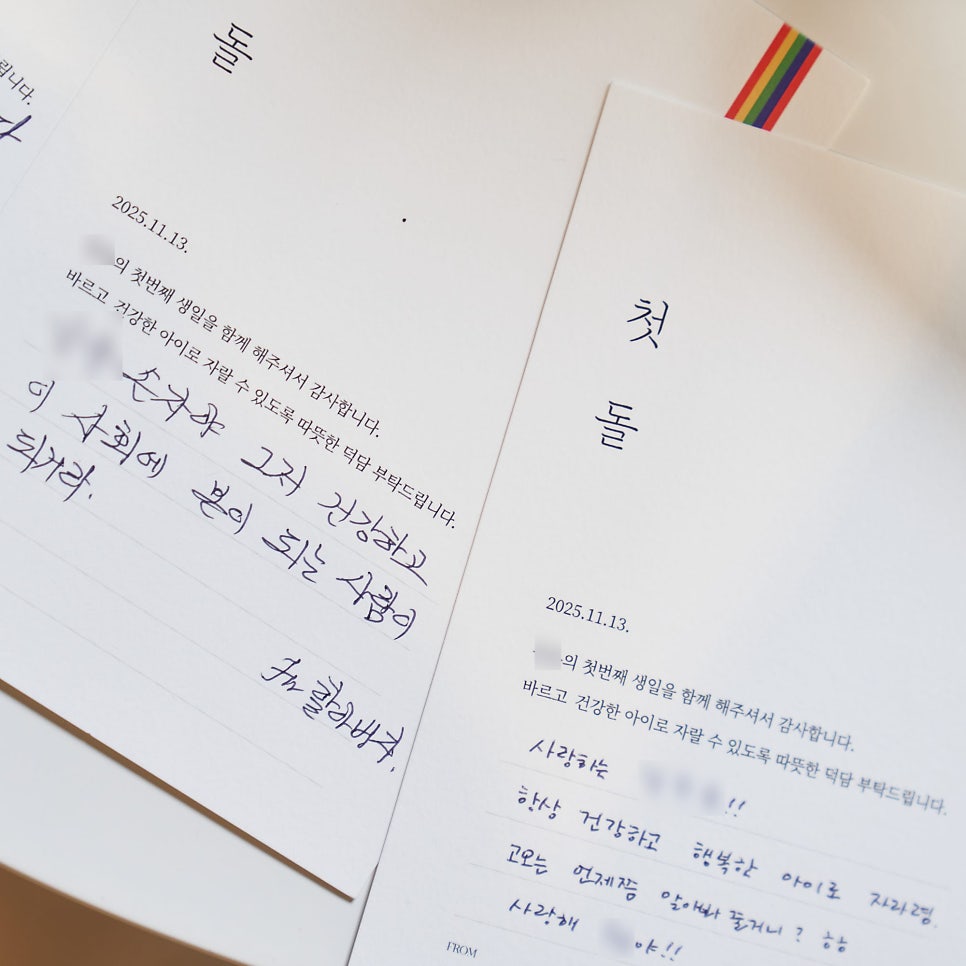 립니다.
다
돌
2025.11.13.
의 첫번째 생일을 함께 해주셔서 감사합니다.
바르고 건강한 아이로 자랄 수 있도록 따뜻한 덕담 부탁드립니다.
손자야 그저 건강하고
이 사회에 본이 되는 사람이
되거라.
큰할아버지.
첫
돌
2025.11.13.
의 첫번째 생일을 함께 해주셔서 감사합니다.
바르고 건강한 아이로 자랄 수 있도록 따뜻한 덕담 부탁드립니다.
사랑하는 !!
항상 건강하고 행복한 아이로 자라렴.
고모는 언제쯤 알아봐 줄거니? ㅎㅎ
사랑해 야!!
FROM